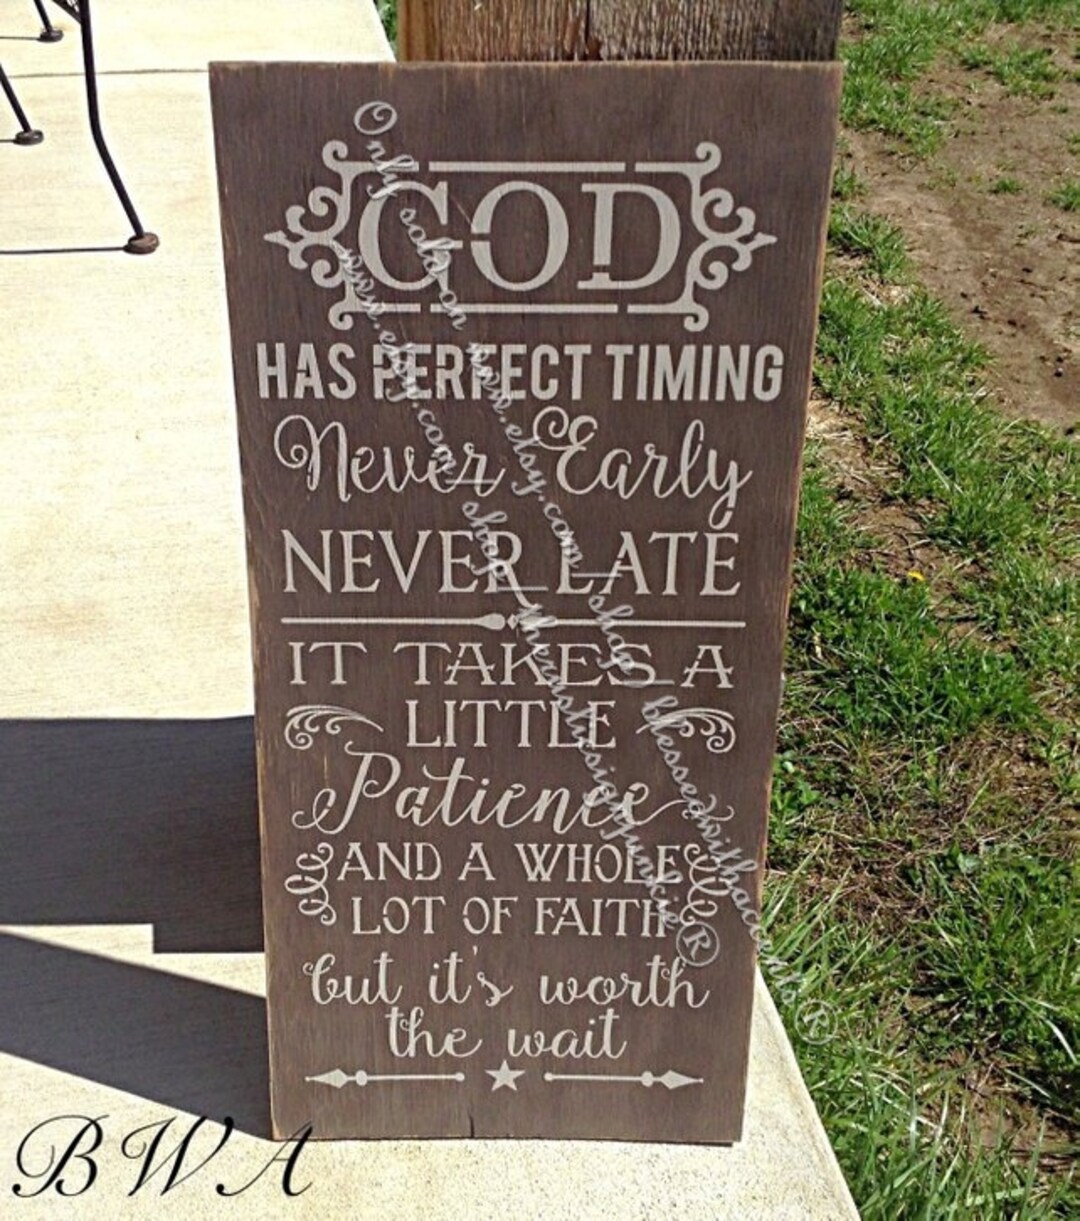 GOD
HAS PERFECT TIMING
Never Early
NEVER LATE
IT TAKES A
LITTLE
Patience
AND A WHOLE
LOT OF FAITH
but it's worth
the wait
Only sold on www.etsy.com/shop/blessedwithaccents®
www.etsy.com/shop/thernstksignjunkie®
BWA